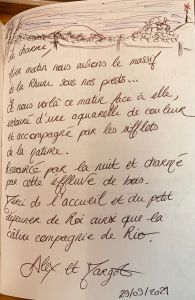 et charme
Hier matin nous avions le massif
de la Rhune sous nos pieds...
Et nous voilà ce matin face à elle,
entouré d'une aquarelle de couleur
et accompagné par les sifflets
de la nature.
par la nuit et chargé
par cette effluve de bois.
Merci de l'accueil et du petit
déjeuner de Roi ainsi que la
câline compagnie de Rio.
Alex et Margot
29/03/2021